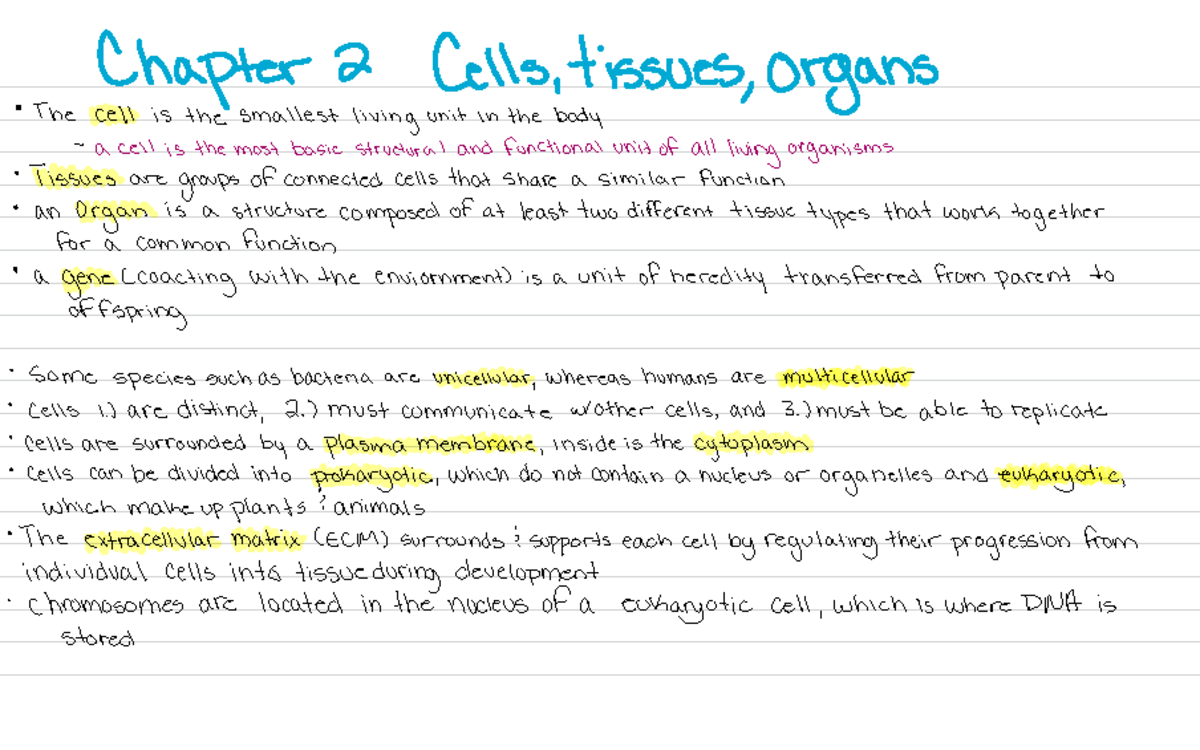 Chapter 2 Cells, tissues, organs
• The cell is the smallest living unit in the body
~ a cell is the most basic structural and functional unit of all living organisms
• Tissues are groups of connected cells that share a similar function
• an Organ is a structure composed of at least two different tissue types that work together
for a common function
• a gene (coacting with the enviornment) is a unit of heredity transferred from parent to
offspring
• Some species such as bacteria are unicellular, whereas humans are multicellular
• Cells 1.) are distinct, 2.) must communicate w/other cells, and 3.) must be able to replicate
• Cells are surrounded by a plasma membrane, inside is the cytoplasm
• Cells can be divided into prokaryotic, which do not contain a nucleus or organelles and eukaryotic,
which make up plants & animals
• The extracellular matrix (ECM) surrounds & supports each cell by regulating their progression from
individual cells into tissue during development
• Chromosomes are located in the nucleus of a eukaryotic cell, which is where DNA is
stored